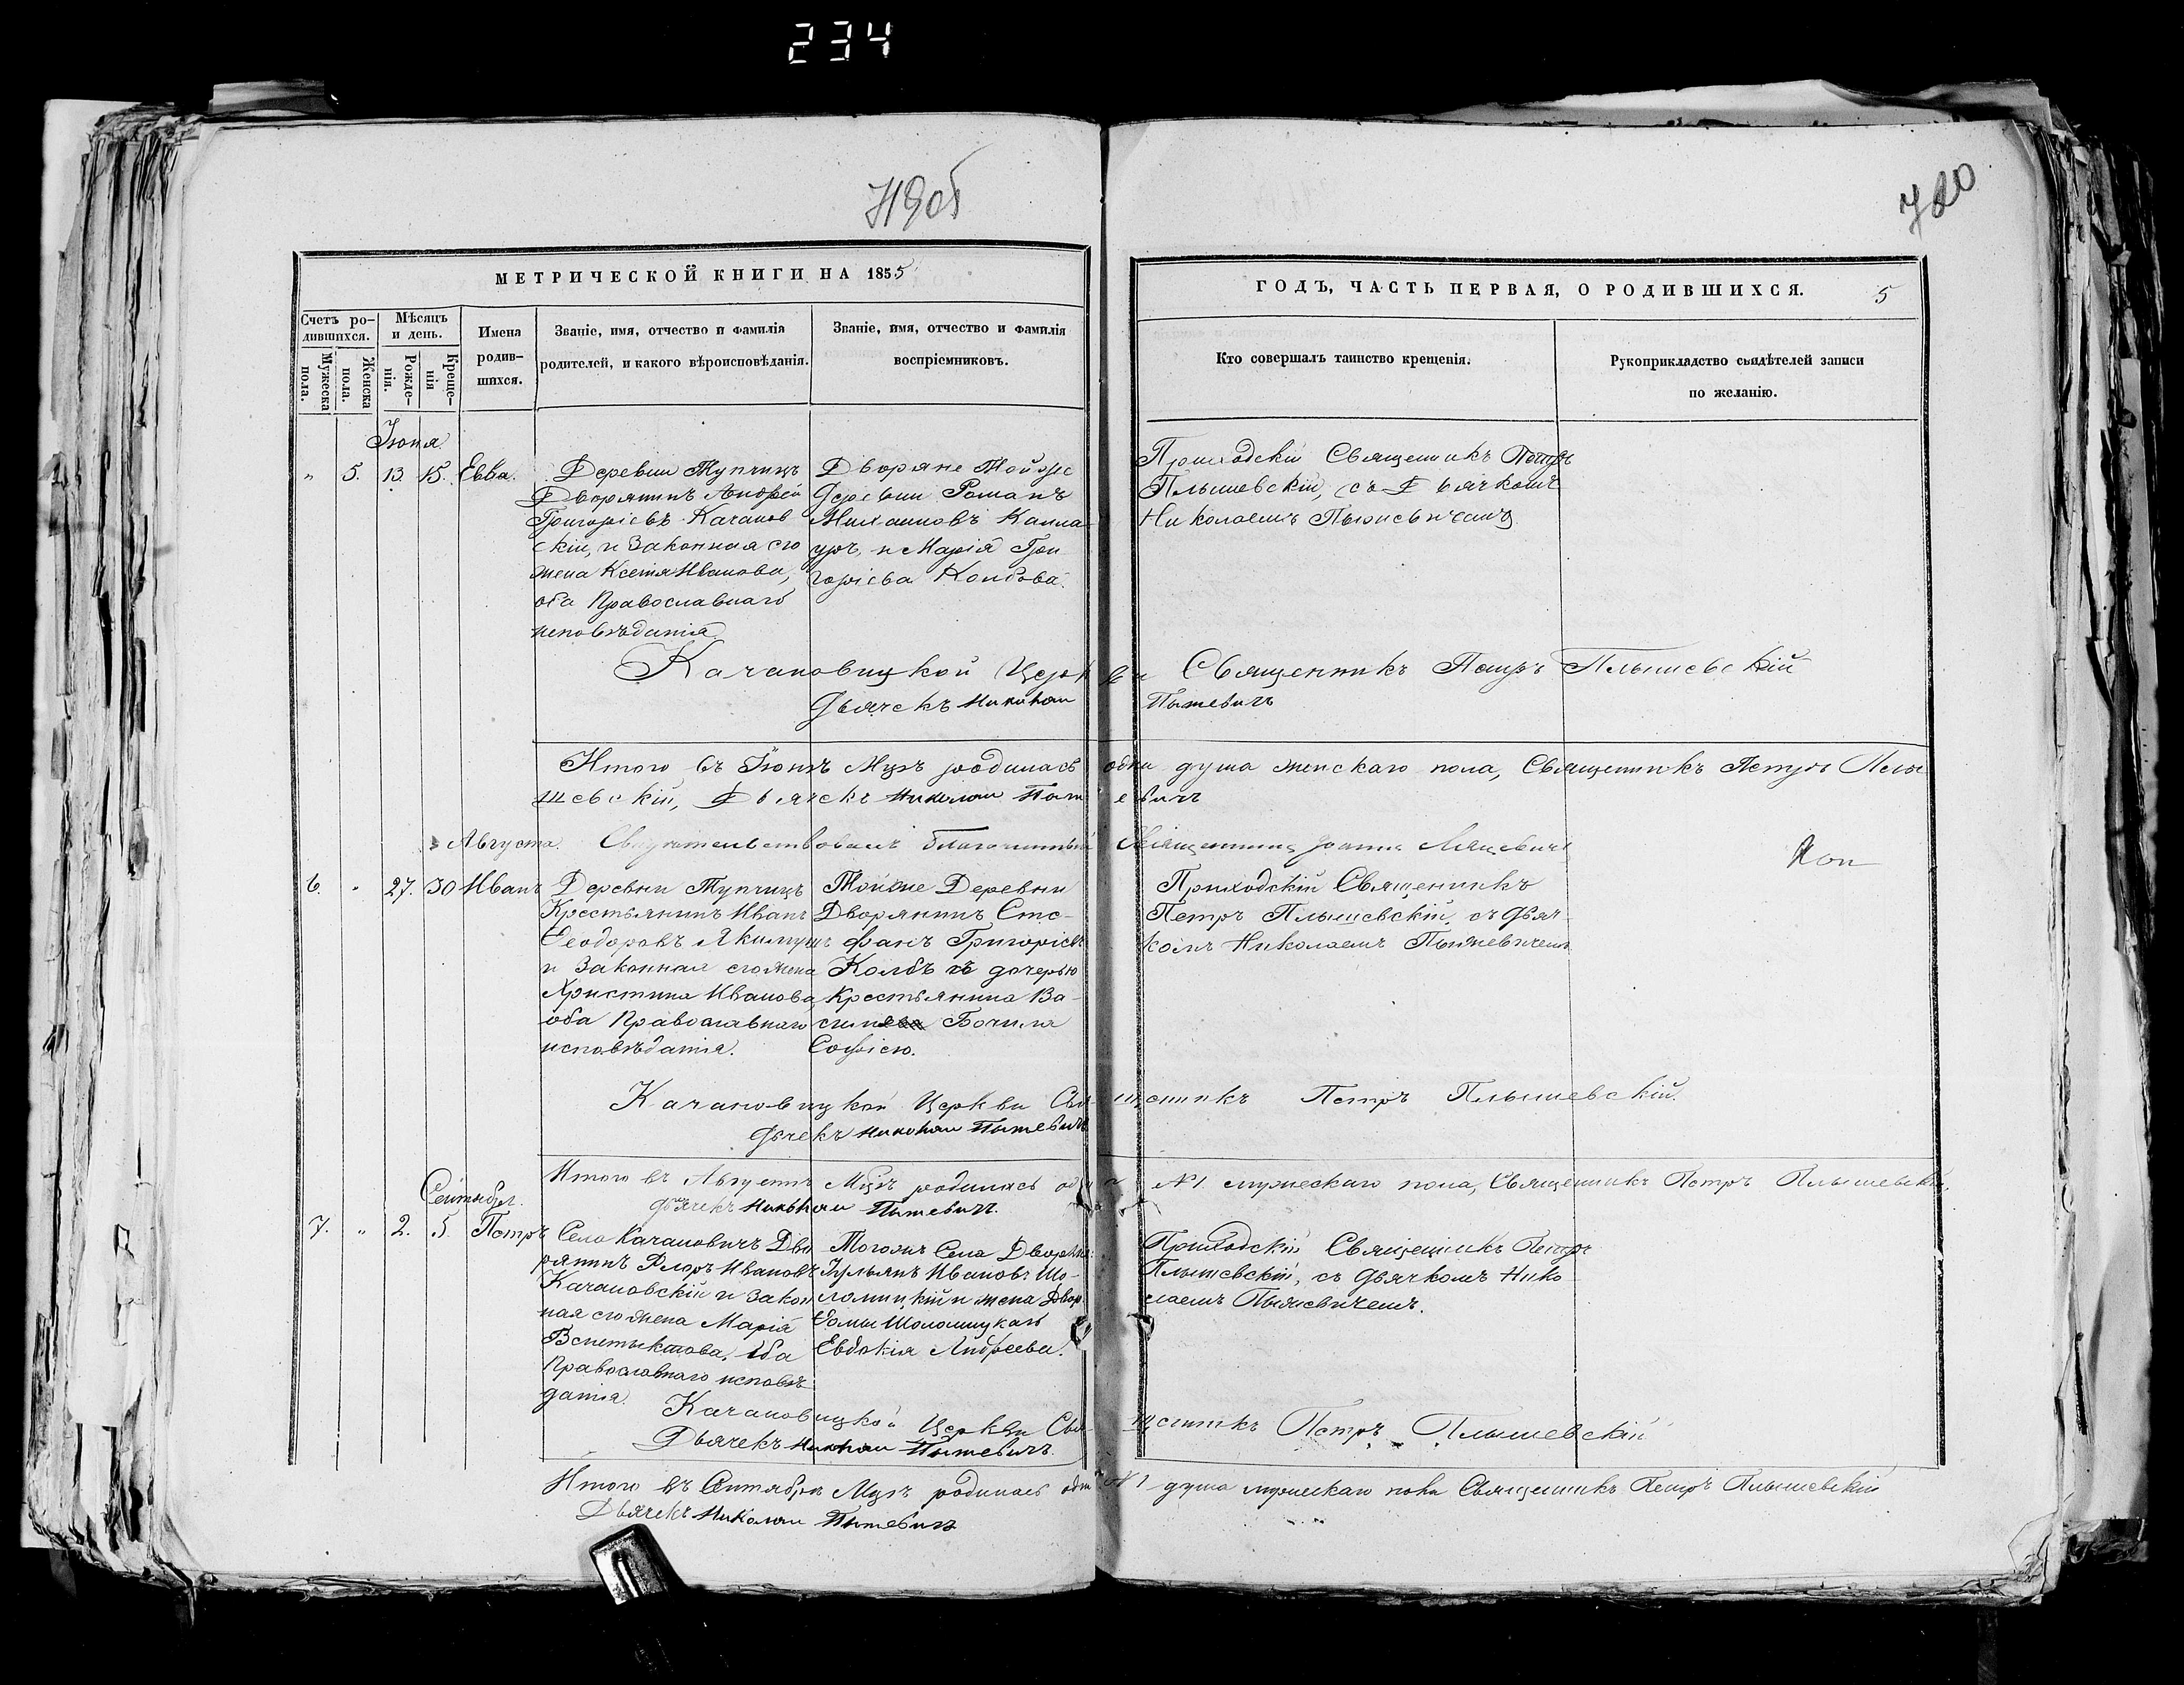 234
719об
720
МЕТРИЧЕСКОЙ КНИГИ НА 1855
ГОДЪ, ЧАСТЬ ПЕРВАЯ, О РОДИВШИХСЯ.
5
Счетъ ро-
дившихся.
Мужеска
пола.
Женска
пола.
Мѣсяцъ
и день.
Рожде-
нія.
Креще-
нія
Имена
родив-
шихся.
Званіе, имя, отчество и фамилія
родителей, и какого вѣроисповѣданія.
Званіе, имя, отчество и фамилія
воспріемниковъ.
Кто совершалъ таинство крещенія.
Рукоприкладство свидѣтелей записи
по желанію.
Іюня
" 5. 13. 15. Евва.
Деревни Тупчицъ
Дворянинъ Андрей
Григоріевъ Качанов
скій, и Законная его
жена Ксенія Иванова,
оба Православнаго
исповѣданія
Дворяне Тойже
деревни Романъ
и Марія Гри
горіева Колбова.
Приходскій Священникъ Петръ
Плышевскій, съ Дьячкомъ
Николаемъ Пыжевичемъ
Качановицкой Церкви Священникъ Петръ Плышевскій
Дьячекъ Николай Пыжевичъ
Итого въ Іюнѣ Мцѣ родилась одна душа женскаго пола, Священникъ Петръ Плы
шевскій, Дьячекъ Николай Пыжевичъ
Августа.
Свидѣтельствовалъ Благочинный Священникъ Іоаннъ
6. " 27. 30 Иванъ
Деревни Тупчицъ
Крестьянинъ Иванъ
Ѳеодоровъ Якимушъ
и Законная его жена
Христина Иванова,
оба Православнаго
исповѣданія.
Тойже Деревни
Дворянинъ Сте-
фанъ Григоріевъ
Колбъ съ дочерью
Крестьянина Ва-
силія
Софіею.
Приходскій Священникъ
Петръ Плышевскій, съ дьяч-
комъ Николаемъ Пыжевичемъ
Качановицкой Церкви Священникъ Петръ Плышевскій.
дьячекъ Николай Пыжевичъ
Итого въ Августѣ Мцѣ родилась одна №1 мужескаго пола, Священникъ Петръ Плышевскій,
дьячекъ Николай Пыжевичъ.
Сентября.
7. " 2. 5. Петръ
Села Качановичъ Дво
рянинъ Флоръ Ивановъ
Качановскій и Закон
ная его жена Марія
оба
Православнаго исповѣ
данія.
Тогожъ Села Дворян:
Іульянъ Ивановъ Шо-
ломицкій и жена Двор.
Ѳомы Шоломицкаго
Евдокія Андреева.
Приходскій Священникъ Петръ
Плышевскій, съ дьячкомъ Нико
лаемъ Пыжевичемъ.
Качановицкой Церкви Священникъ Петръ Плышевскій
Дьячекъ Николай Пыжевичъ.
Итого въ Сентябрѣ Мцѣ родилась одна №1 душа мужескаго пола Священникъ Петръ Плышевскій
Дьячекъ Николай Пыжевичъ